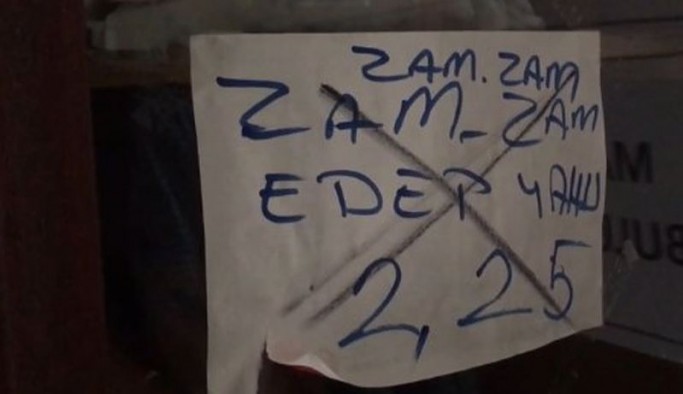 ZAM. ZAM
ZAM-ZAM
EDEP YAHU
2,25